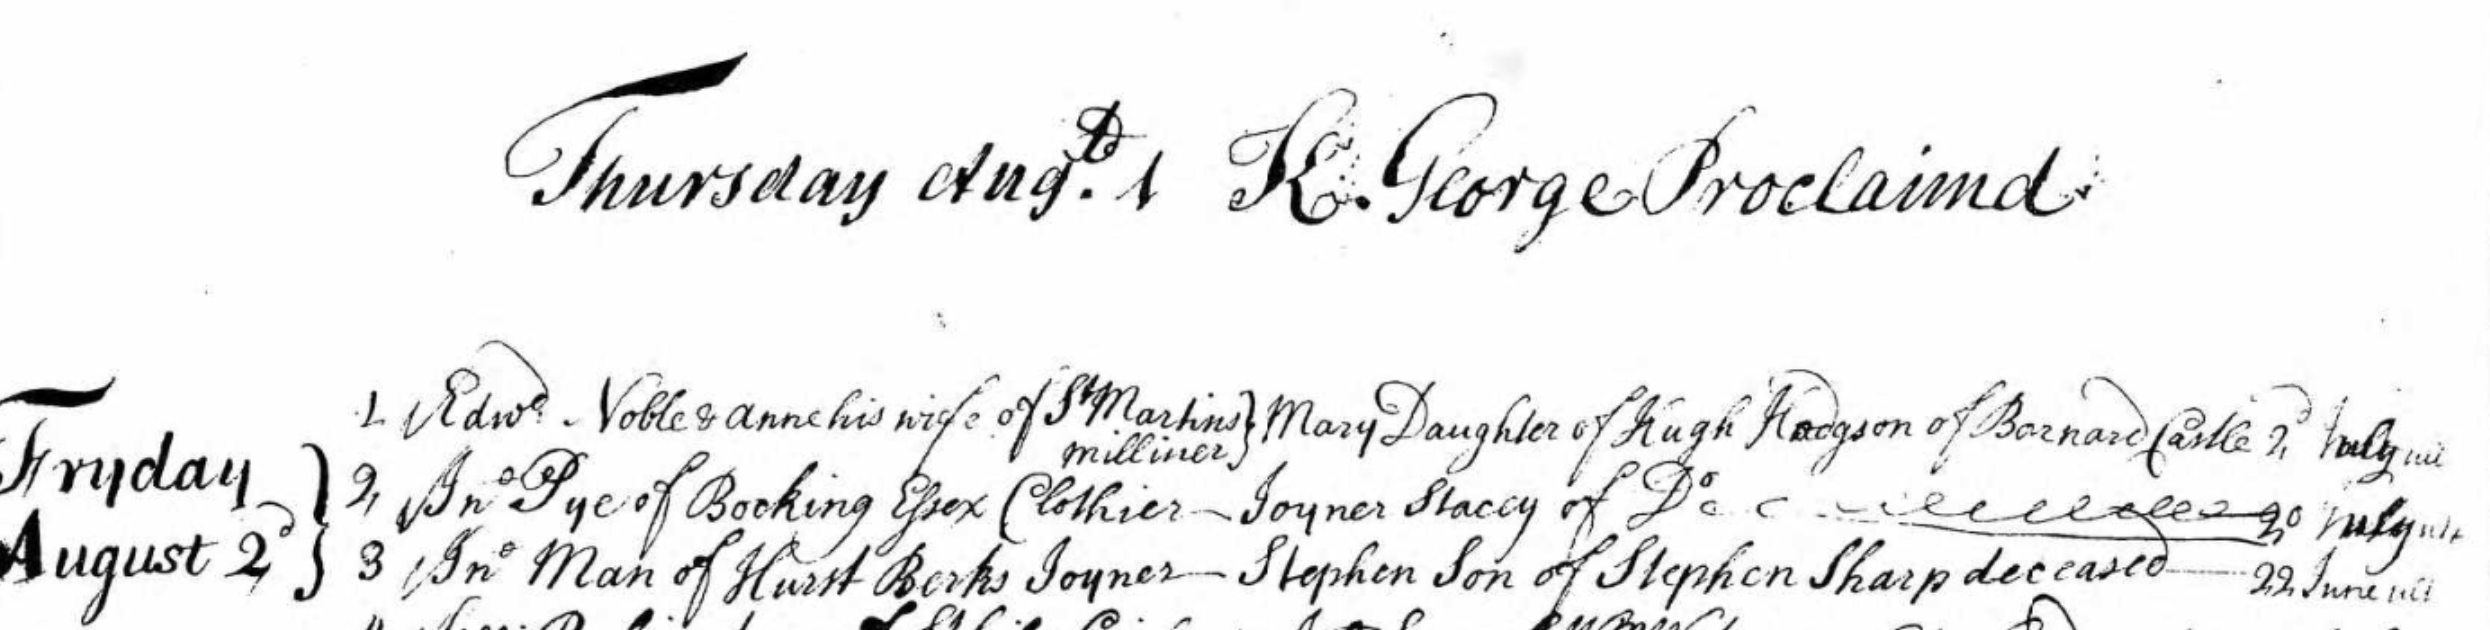 Thursday Augt. 1 K. George Proclaimd
Fryday
August 2d
1 Edwd. Noble & Anne his wife of St Martins milliner} Mary Daughter of Hugh Hodgson of Barnard Castle 2d July ult
2 Jno Pye of Bocking Essex Clothier — Joyner Stacey of Do 20 July ult
3 Jno Man of Hurst Berks Joyner — Stephen Son of Stephen Sharp deceased — 22 June ult